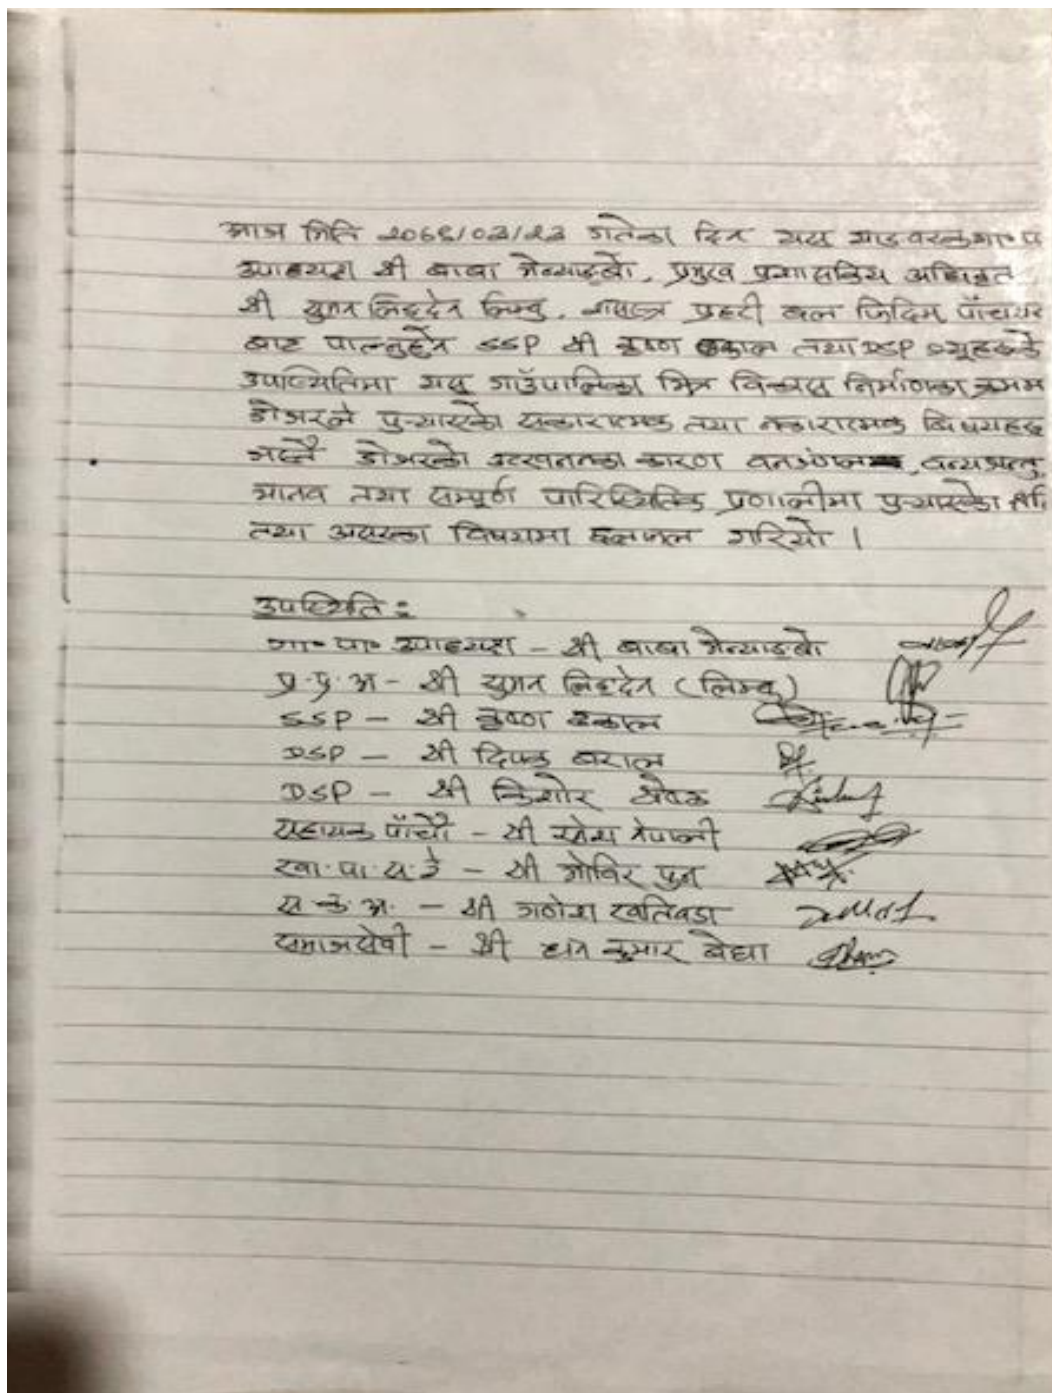 आज मिति २०७६/०३/२३ गतेका दिन यस याङवरक गा॰पा
उपाध्यक्ष श्री बाबा मेन्याङ्बो, प्रमुख प्रशासकिय अधिकृत
श्री युगन लिङदेन लिम्बु, सशस्त्र प्रहरी बल पाँचथर
बाट पाल्नुहुने SSP श्री कृष्ण ढकाल तथा DSP
उपस्थितिमा यस गाउँपालिका भित्र विकास निर्माणका क्रममा
डोजरले पुर्‍याएको सकारात्मक तथा नकारात्मक बिषयहरु
डोजरको उत्खननका कारण वनजंगल, वन्यजन्तु,
मानव तथा सम्पूर्ण पारिस्थितिक प्रणालीमा पुर्‍याएको
तथा असरका विषयमा छलफल गरियो ।
उपस्थिति :
गा॰ पा॰ उपाध्यक्ष - श्री बाबा मेन्याङ्बो
प्र.प्र.अ - श्री युगन लिङदेन (लिम्बु)
SSP - श्री कृष्ण ढकाल
DSP - श्री दिपक बराल
DSP - श्री किशोर श्रेष्ठ
सहायक पाँचौ - श्री रमेश नेपाली
खा.पा.स.टे - श्री ओविर पुन
स.क.अ. - श्री गणेश खतिवडा
समाजसेवी - श्री धन कुमार बेघा